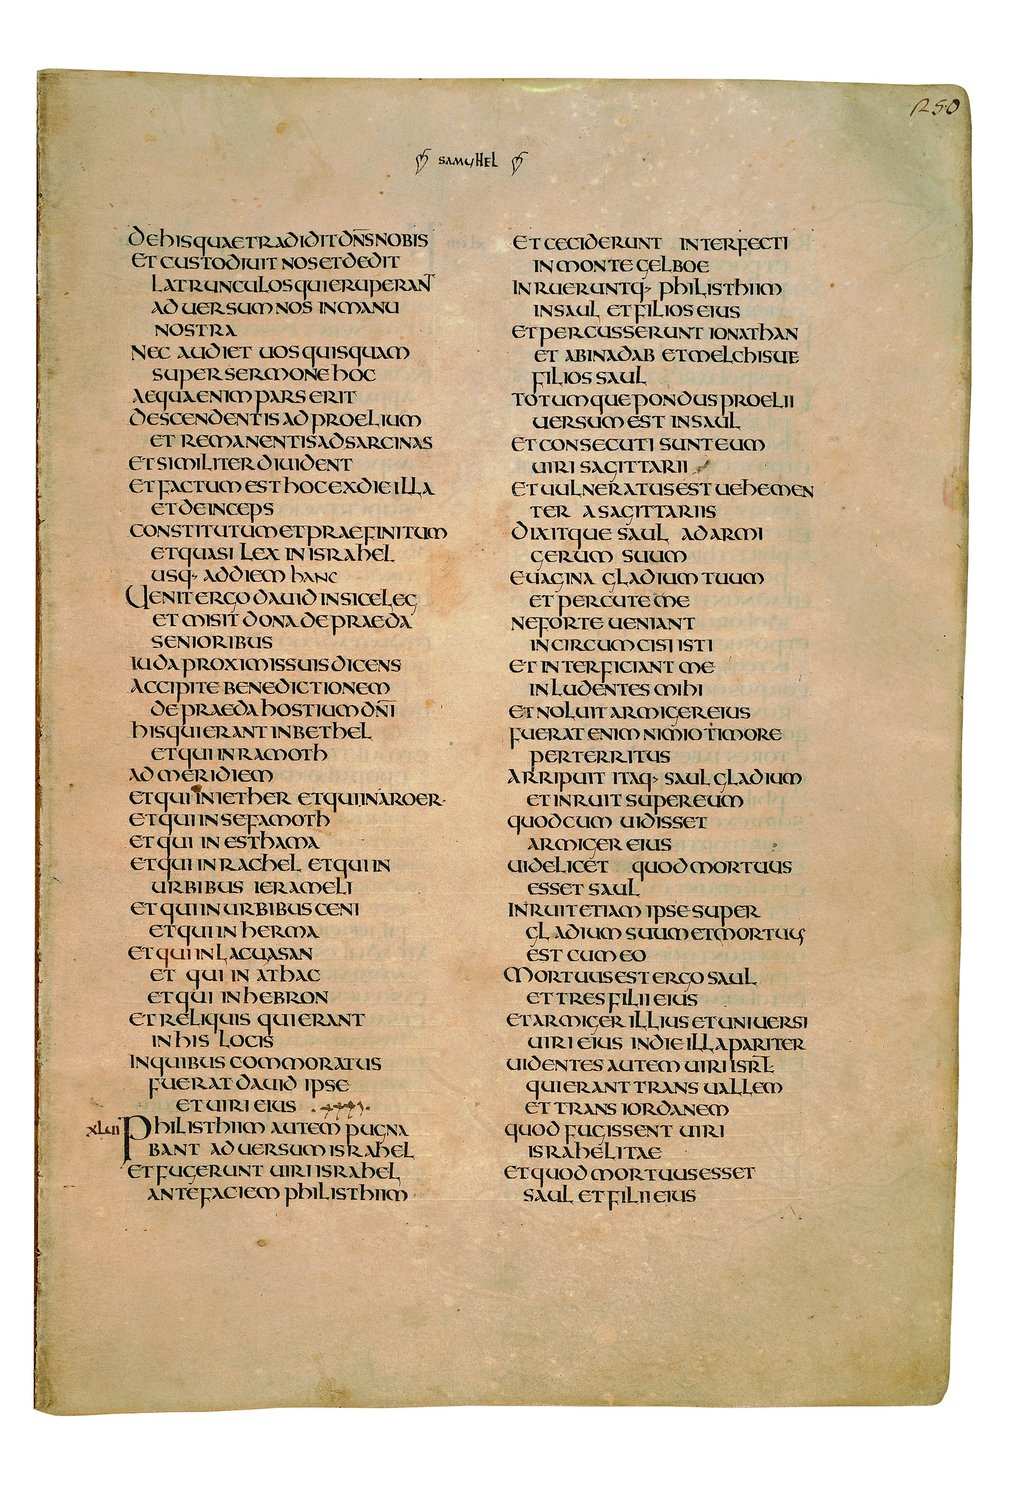 250
SAMUHEL
DEHISQUAETRADIDITDN̄SNOBIS
ETCUSTODIUITNOSETDEDIT
LATRUNCULOSQUIERUPERANT
ADUERSUMNOS INMANU
NOSTRA
NEC AUDIET UOSQUISQUAM
SUPERSERMONEHOC
AEQUAENIMPARSERIT
DESCENDENTISADPROELIUM
ET REMANENTISADSARCINAS
ETSIMILITERDIUIDENT
ETFACTUMESTHOCEXDIEILLA
ETDEINCEPS
CONSTITUTUMETPRAEFINITUM
ETQUASI LEX INISRAHEL
USQ· ADDIEM HANC
UENITERGODAUIDINSICELEG
ET MISIT DONA DEPRAEDA
SENIORIBUS
IUDAPROXIMISSUISDICENS
ACCIPITEBENEDICTIONEM
DEPRAEDAHOSTIUMDN̄I
HISQUIERANTINBETHEL
ETQUIINRAMOTH
ADMERIDIEM
ETQUIINIETHER ETQUIINAROER·
ETQUIINSEFAMOTH
ETQUI IN ESTHAMA
ETQUIINRACHEL ETQUIIN
URBIBUS IERAMELI
ETQUIINURBIBUSCENI
ETQUIINHERMA
ETQUIINLACUASAN
ET QUI IN ATHAC
ETQUI INHEBRON
ETRELIQUIS QUIERANT
INHIS LOCIS
INQUIBUS COMMORATUS
FUERATDAUID IPSE
ETUIRIEIUS
XLVII PHILISTHIIM AUTEM PUGNA
BANT ADUERSUMISRAHEL
ETFUGERUNT UIRIISRAHEL
ANTEFACIEMPHILISTHIIM
ETCECIDERUNT INTERFECTI
INMONTEGELBOE
INRUERUNTQ· PHILISTHIIM
INSAUL ETFILIOSEIUS
ETPERCUSSERUNT IONATHAN
ET ABINADAB ETMELCHISUE
FILIOSSAUL
TOTUMQUEPONDUSPROELII
UERSUMEST INSAUL
ETCONSECUTI SUNTEUM
UIRI SAGITTARII
ETUULNERATUSESTUEHEMEN
TER ASAGITTARIIS
DIXITQUE SAUL ADARMI
GERUM SUUM
EUAGINA GLADIUMTUUM
ETPERCUTEME
NEFORTEUENIANT
INCIRCUMCISIISTI
ETINTERFICIANT ME
INLUDENTESMIHI
ETNOLUITARMIGEREIUS
FUERATENIMNIMIOTIMORE
PERTERRITUS
ARRIPUIT ITAQ· SAULGLADIUM
ETINRUITSUPEREUM
QUODCUM UIDISSET
ARMIGEREIUS
UIDELICET QUODMORTUUS
ESSETSAUL
INRUITETIAMIPSESUPER
GLADIUMSUUMETMORTUUS
ESTCUMEO
MORTUUSESTERGOSAUL
ETTRESFILIIEIUS
ETARMIGERILLIUSETUNIUERSI
UIRIEIUS INDIEILLAPARITER
UIDENTESAUTEMUIRIISRL̄
QUIERANTTRANSUALLEM
ETTRANSIORDANEM
QUODFUGISSENT UIRI
ISRAHELITAE
ETQUODMORTUUSESSET
SAULETFILIIEIUS